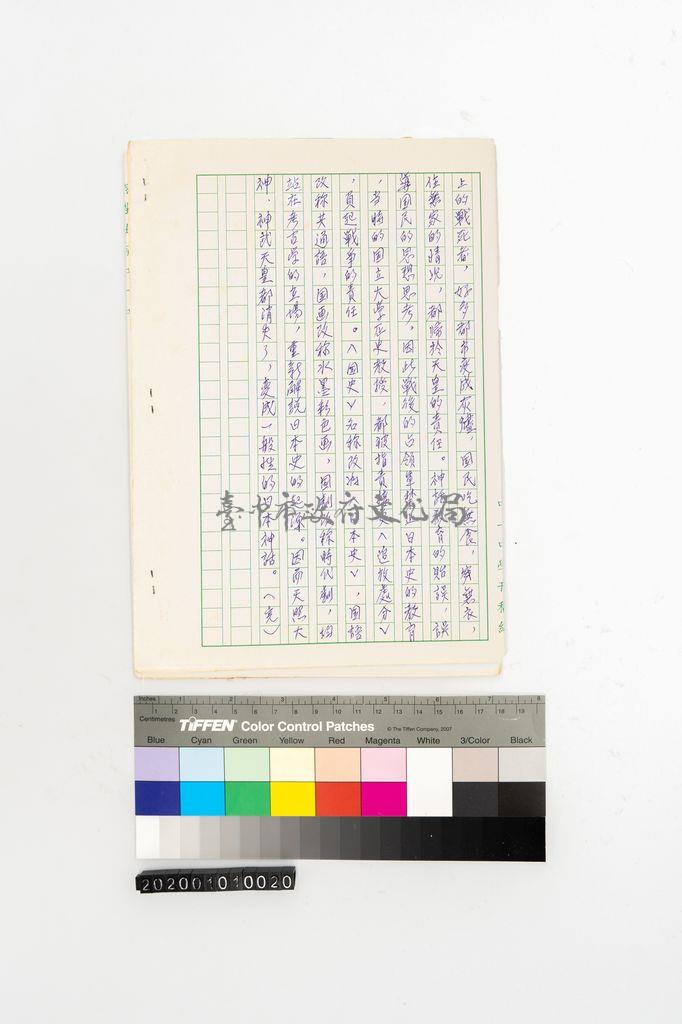 上的戰死者，好多都市变成灰燼，国民吃無食，穿無衣，
住無家的情況，都歸於天皇的責任。神話教育的貽誤，誤
導国民的思想思考，因此戰後的占領軍禁止日本史的教育
，当時的国立大学歷史教授，都被指責 ∧追放處分∨
，負起戰争的責任。∧国史∨名称改為 本史∨，国語
改称共通語，国画改称水墨彩色画，国劇改称時代劇，均
站在考古学的立場，重新解説日本史的起源。因而天照大
神、神武天皇都消失了，変成一般性的日本神話。（完）
臺中市政府文化局
Inches 1 2 3 4 5 6 7 8
Centimetres 1 2 3 4 5 6 7 8 9 10 11 12 13 14 15 16 17 18 19
TIFFEN Color Control Patches © The Tiffen Company, 2007
Blue Cyan Green Yellow Red Magenta White 3/Color Black
202001010020